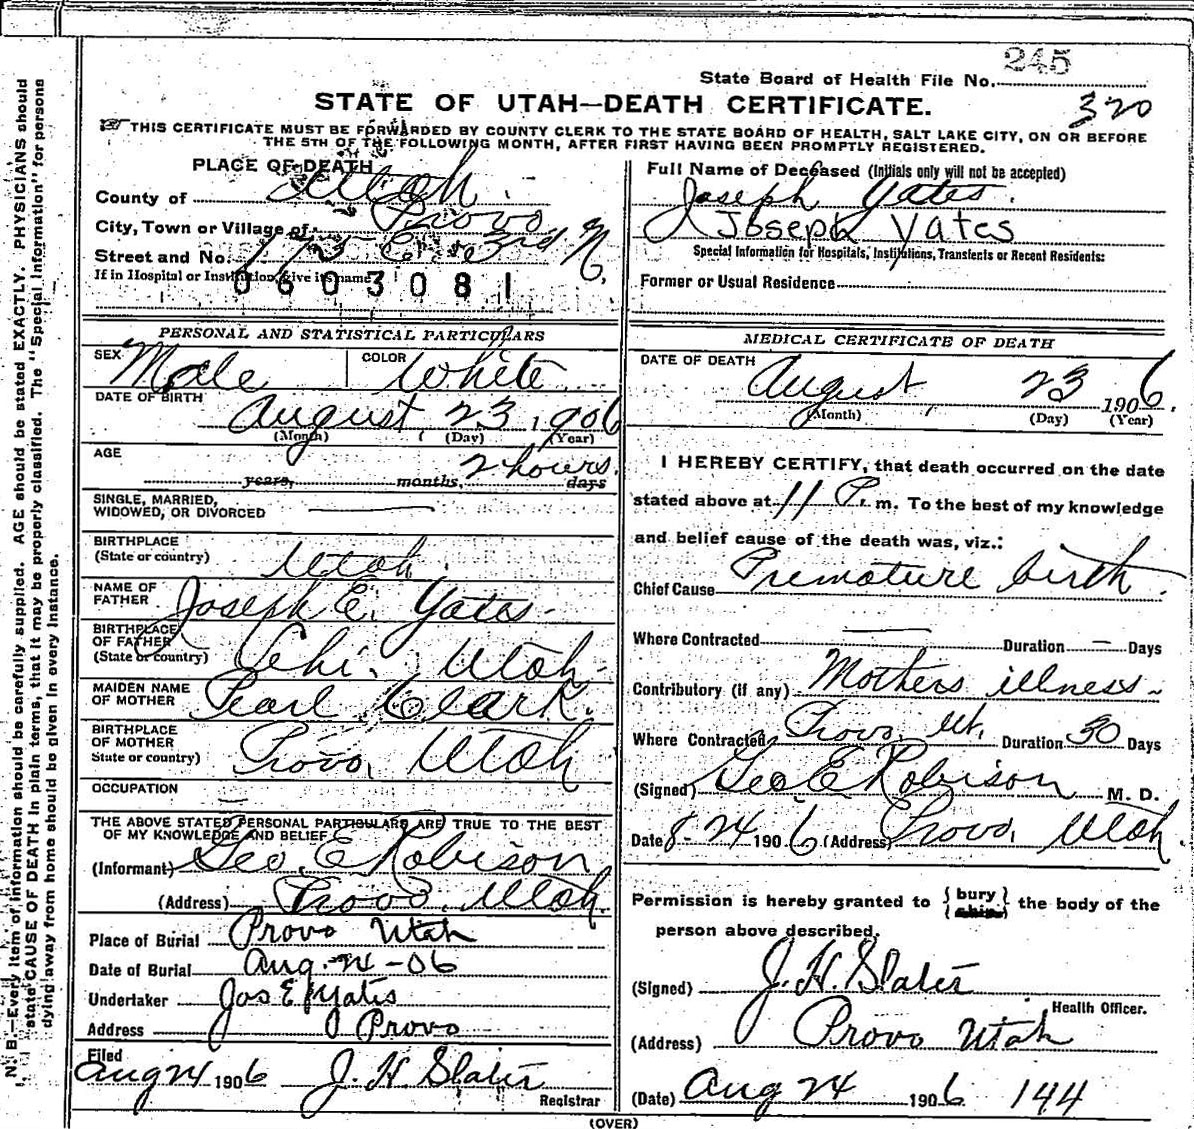 245
State Board of Health File No.
STATE OF UTAH—DEATH CERTIFICATE.
320
THIS CERTIFICATE MUST BE FORWARDED BY COUNTY CLERK TO THE STATE BOARD OF HEALTH, SALT LAKE CITY, ON OR BEFORE
THE 5TH OF THE FOLLOWING MONTH, AFTER FIRST HAVING BEEN PROMPTLY REGISTERED.
PLACE OF DEATH
County of Utah
City, Town or Village of Provo
Street and No. 175 E. 3rd N.
If in Hospital or Institution, give its name
0603081
Full Name of Deceased (Initials only will not be accepted)
Joseph Yates.
Joseph Yates
Special Information for Hospitals, Institutions, Transients or Recent Residents:
Former or Usual Residence
PERSONAL AND STATISTICAL PARTICULARS
SEX Male COLOR White
DATE OF BIRTH
August 23, 1906
(Month) (Day) (Year)
AGE
years, months, 2 hours. days
SINGLE, MARRIED,
WIDOWED, OR DIVORCED
BIRTHPLACE
(State or country) Utah
NAME OF
FATHER Joseph E. Yates
BIRTHPLACE
OF FATHER
(State or country) Lehi, Utah
MAIDEN NAME
OF MOTHER Pearl Clark.
BIRTHPLACE
OF MOTHER
State or country) Provo, Utah
OCCUPATION
THE ABOVE STATED PERSONAL PARTICULARS ARE TRUE TO THE BEST
OF MY KNOWLEDGE AND BELIEF
(Informant) Geo. E Robison
(Address) Provo, Utah.
Place of Burial Provo Utah
Date of Burial Aug. 24-06
Undertaker Jos E Yates
Address Provo
Filed
Aug 24 1906 J. H. Slater
Registrar
MEDICAL CERTIFICATE OF DEATH
DATE OF DEATH
August, 23 1906.
(Month) (Day) (Year)
I HEREBY CERTIFY, that death occurred on the date
stated above at 11 P. m. To the best of my knowledge
and belief cause of the death was, viz.:
Chief Cause Premature birth.
Where Contracted — Duration — Days
Contributory (if any) Mothers illness
Where Contracted Provo, Ut. Duration 30 Days
(Signed) Geo E Robison M. D.
Date 8-24 1906 (Address) Provo, Utah.
Permission is hereby granted to { bury
ship } the body of the
person above described.
(Signed) J. H. Slater
Health Officer.
(Address) Provo Utah
(Date) Aug 24 1906 144
(OVER)
N. B.—Every item of information should be carefully supplied. AGE should be stated EXACTLY. PHYSICIANS should
state CAUSE OF DEATH in plain terms, that it may be properly classified. The "Special Information" for persons
dying away from home should be given in every instance.